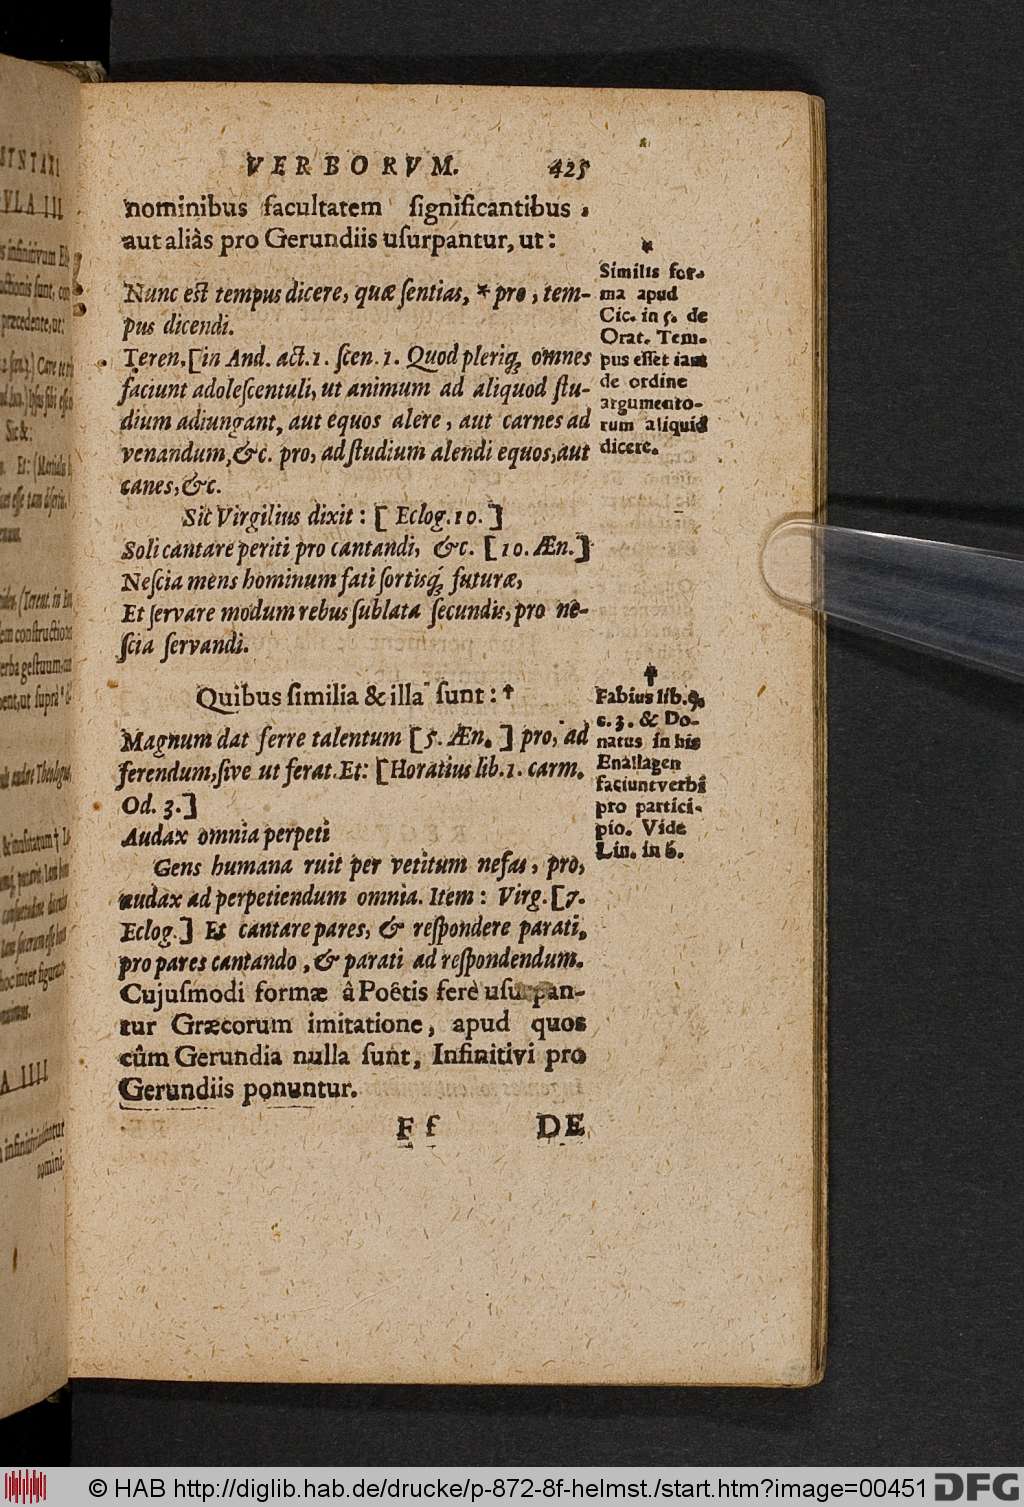 VERBORVM. 425
nominibus facultatem ſignificantibus,
aut aliàs pro Gerundiis uſurpantur, ut:
Nunc eſt tempus dicere, quæ ſentias, * pro, tem-
pus dicendi.
Teren. [in And. act. 1. ſcen. 1. Quod pleriq́; omnes
faciunt adoleſcentuli, ut animum ad aliquod ſtu-
dium adiungant, aut equos alere, aut carnes ad
venandum, &c. pro, ad ſtudium alendi equos, aut
canes, &c.
Sic Virgilius dixit: [Eclog. 10.]
Soli cantare periti pro cantandi, &c. [10. Æn.]
Neſcia mens hominum fati ſortisq́; futuræ,
Et ſervare modum rebus ſublata ſecundis, pro ne-
ſcia ſervandi.
Quibus ſimilia & illa ſunt: †
Magnum dat ferre talentum [5. Æn.] pro, ad
ferendum, ſive ut ferat. Et: [Horatius lib. 1. carm.
Od. 3.]
Audax omnia perpeti
Gens humana ruit per vetitum nefas, pro,
audax ad perpetiendum omnia. Item: Virg. [7.
Eclog.] Et cantare pares, & reſpondere parati,
pro pares cantando, & parati ad reſpondendum.
Cujuſmodi formæ â Poêtis ferè uſurpan-
tur Græcorum imitatione, apud quos
cûm Gerundia nulla ſunt, Infinitivi pro
Gerundiis ponuntur.
Ff DE
*
Similis for-
ma apud
Cic. in 5. de
Orat. Tem-
pus eſſet iam
de ordine
argumento-
rum aliquid
dicere.
†
Fabius lib. 9.
c. 3. & Do-
natus in his
Enallagen
faciunt verbi
pro partici-
pio. Vide
Lin. in 6.
SYNTAXI
ULA III
© HAB http://diglib.hab.de/drucke/p-872-8f-helmst./start.htm?image=00451
DFG